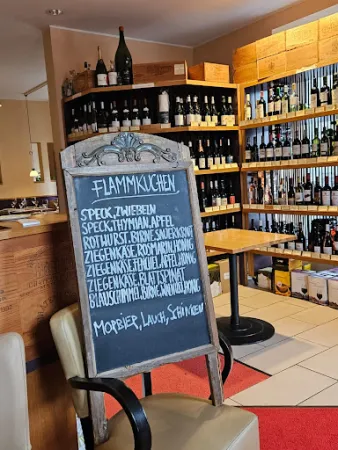 FLAMMKUCHEN
SPECK, ZWIEBELN
SPECK, THYMIAN, APFEL
ROTWURST, BIRNE, SAUERKRAUT
ZIEGENKÄSE, ROSMARIN, HONIG
ZIEGENKÄSE, FENCHEL, APFEL, HONIG
ZIEGENKÄSE, BLATTSPINAT
BLAUSCHIMMEL, BIRNE, WALNUSS, HONIG
MORBIER, LAUCH, SCHINKEN